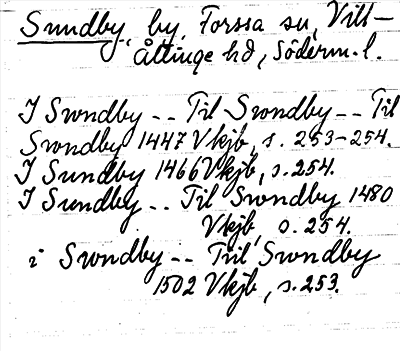 Sundby, by, Forssa sn, Vill-
åttinge hd, Söderm. l.
I Swndby -- Til Swndby -- Til
Swndby 1447 Vkjb, s. 253-254.
I Sundby 1466 Vkjb, s. 254.
I Sundby -- Til Swndby 1480
Vkjb, s. 254.
i Swndby -- Till Swndby
1502 Vkjb, s. 253.